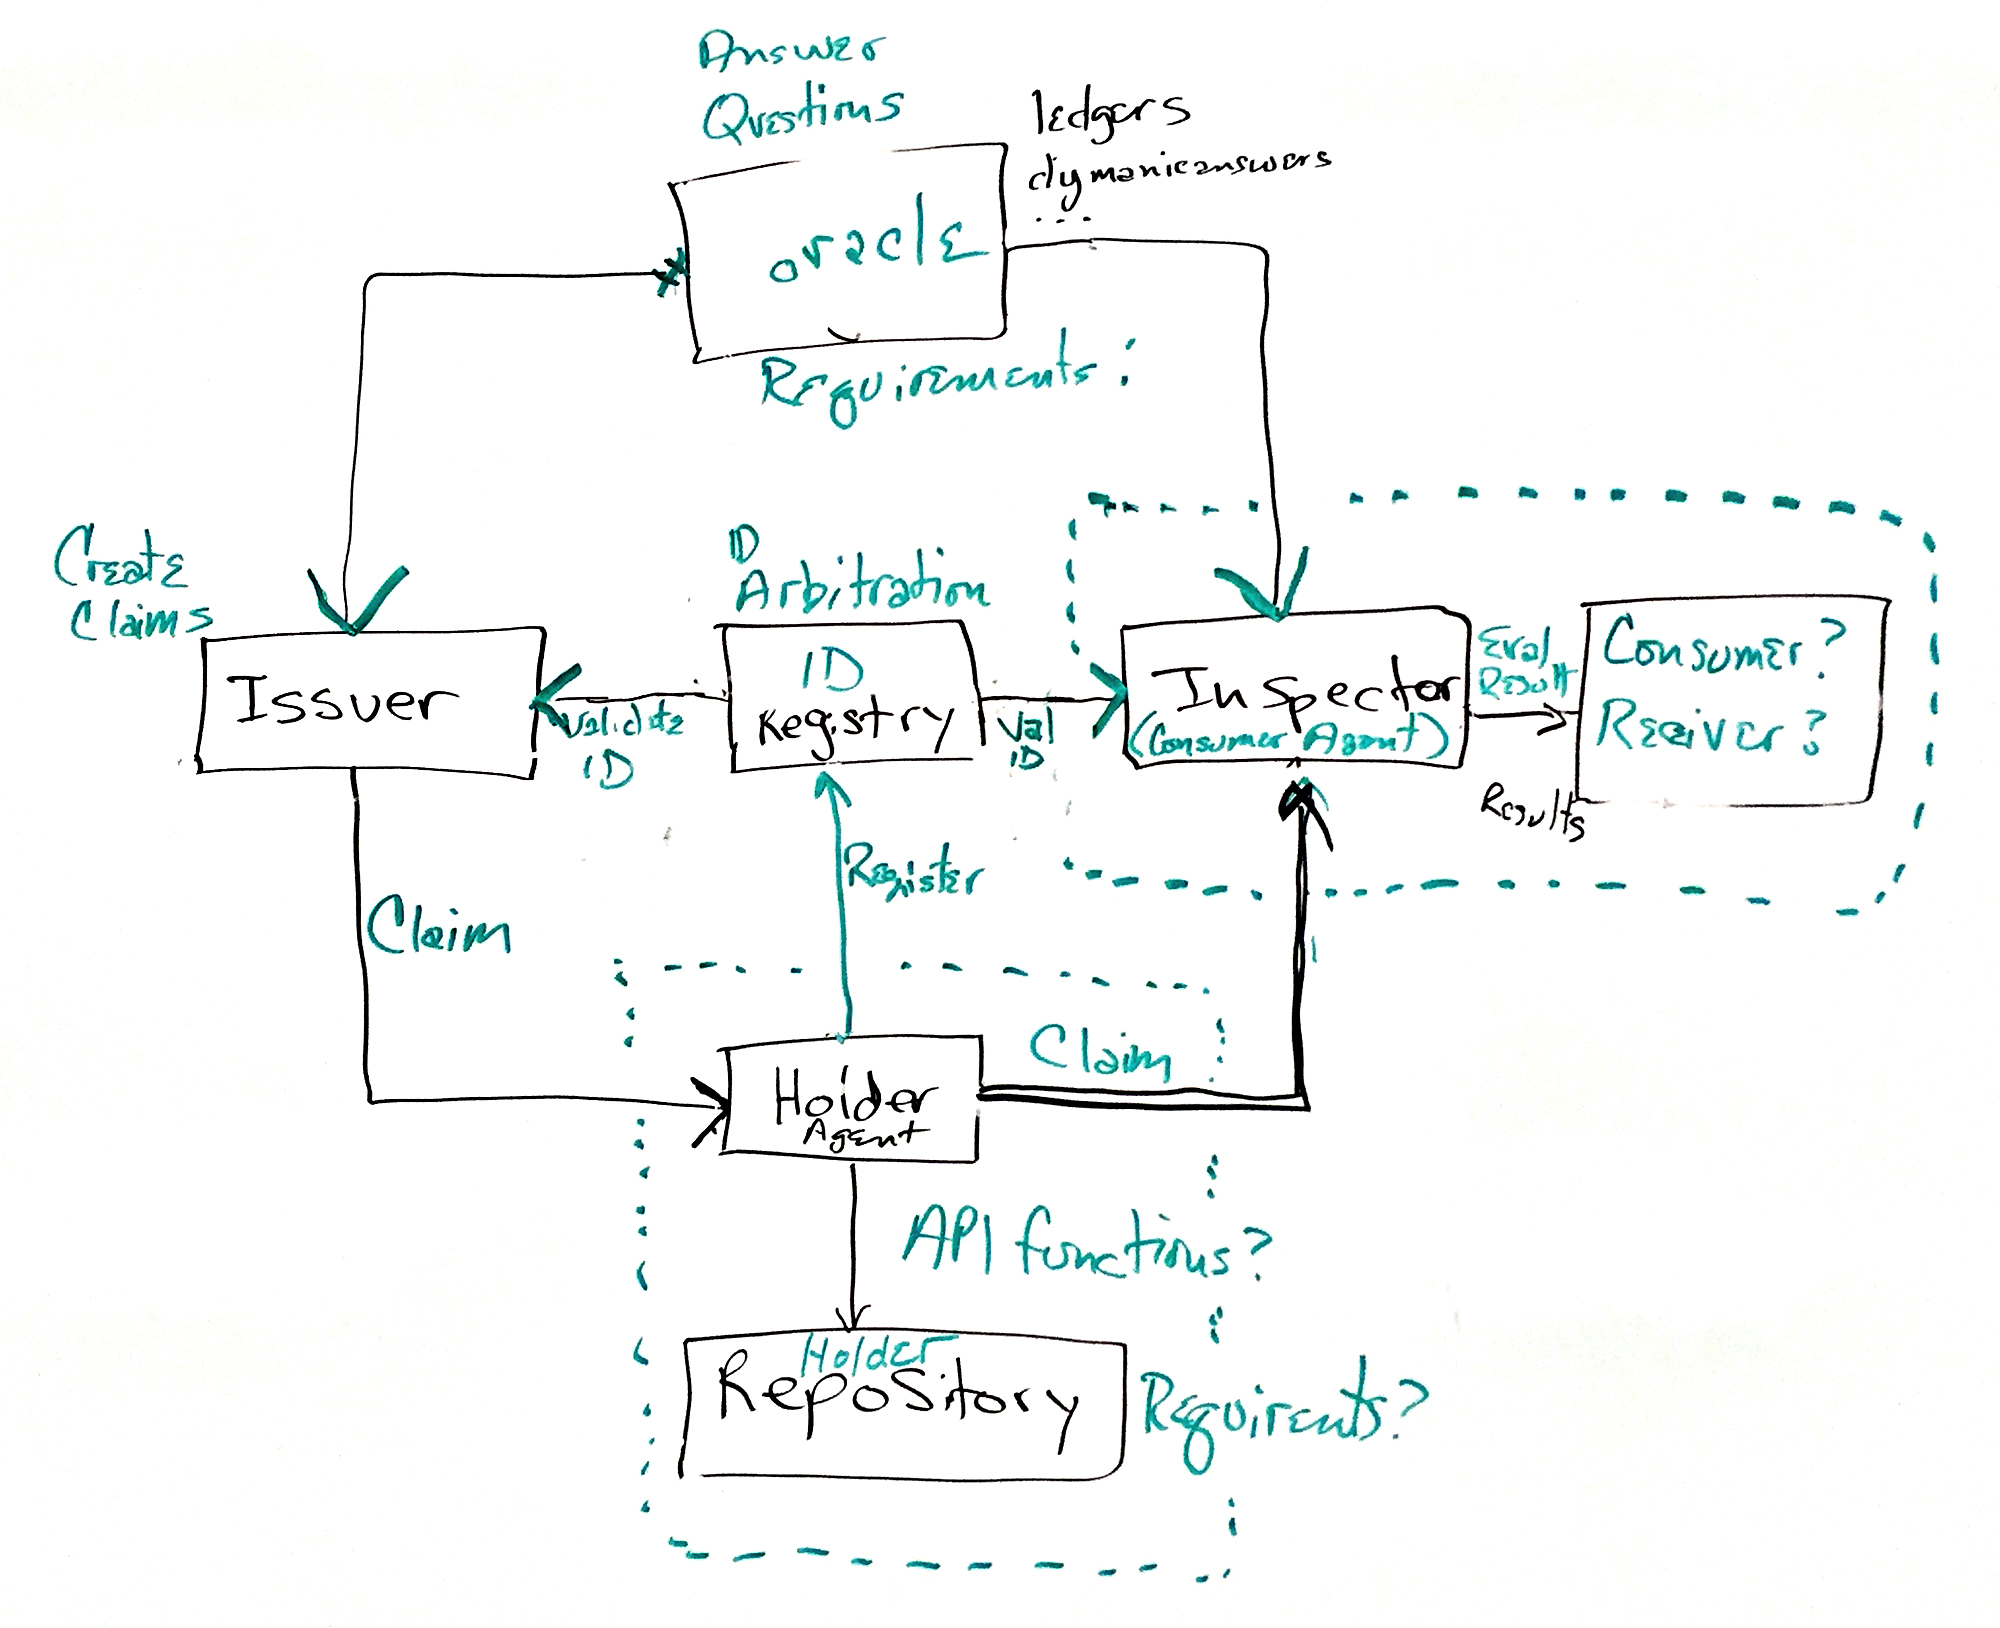 Answer
Questions
ledgers
dymanic answers
...
oracle
Requirements:
Create
Claims
ID
Arbitration
Issuer
Validate
ID
ID
Registry
Val
ID
Inspector
(Consumer Agent)
Eval
Result
Results
Consumer?
Reciver?
Register
Claim
Claim
Holder
Agent
API functions?
Holder
Repository
Requirents?